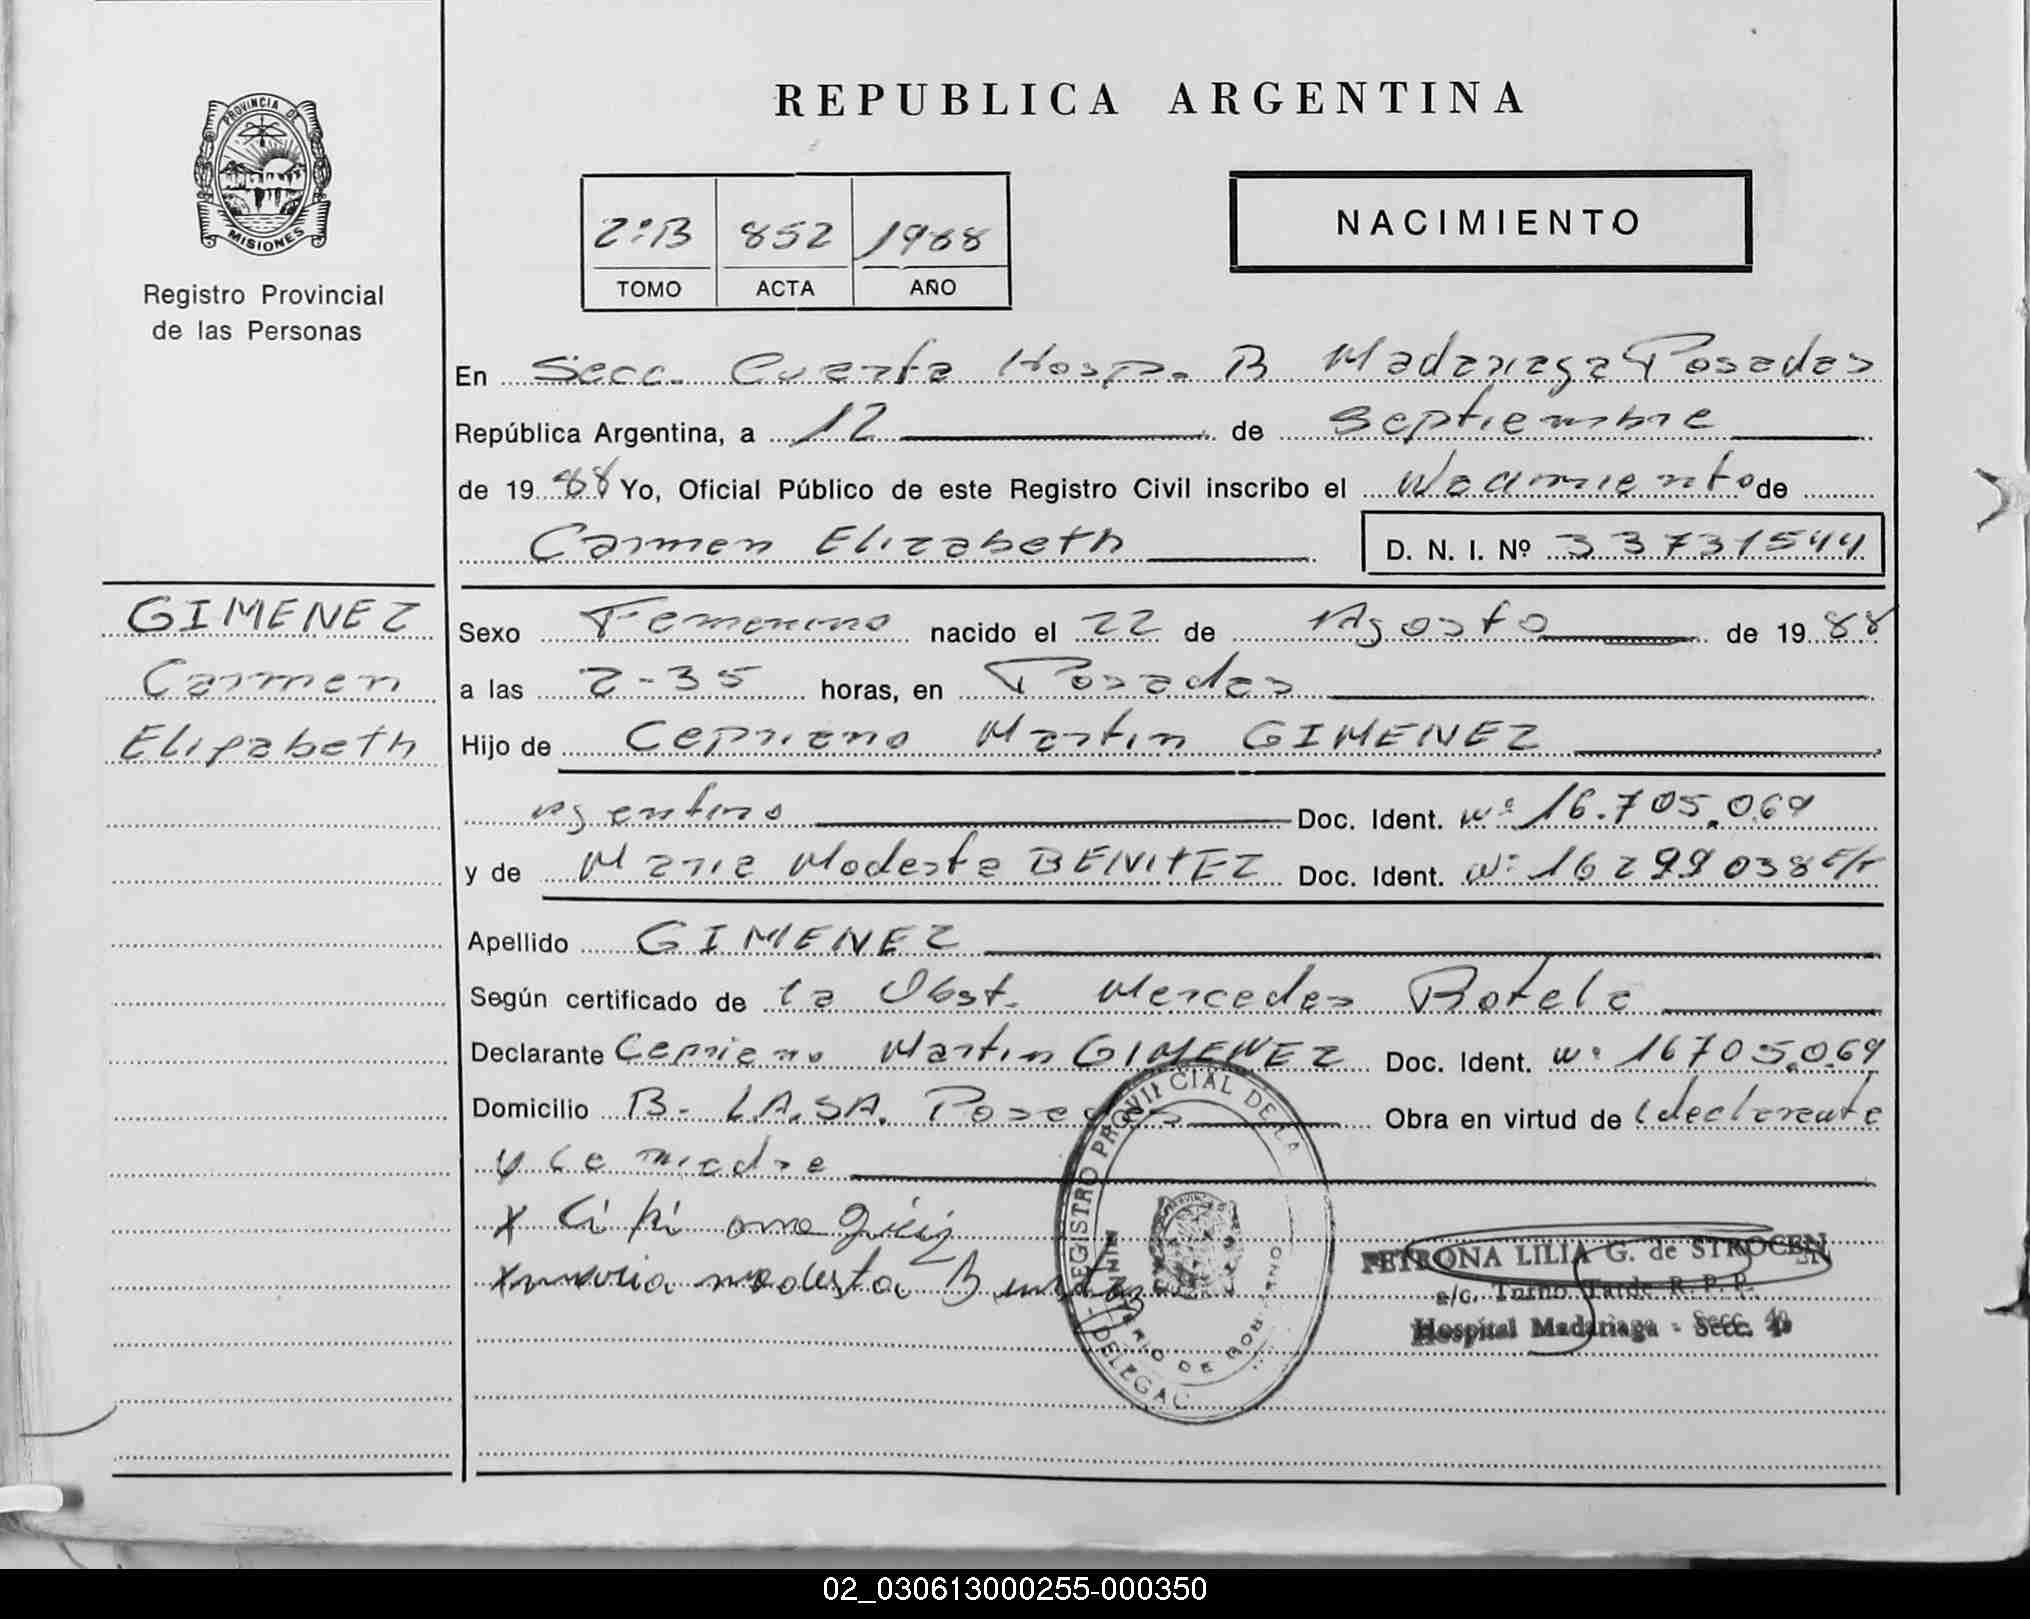 PROVINCIA DE
MISIONES
Registro Provincial
de las Personas
REPUBLICA ARGENTINA
2ºB 852 1988
TOMO ACTA AÑO
NACIMIENTO
En Secc. Cuarta Hosp. B Madariaga Posadas
República Argentina, a 12 de Septiembre
de 1988 Yo, Oficial Público de este Registro Civil inscribo el Nacimiento de
Carmen Elizabeth D. N. I. Nº 33731544
GIMENEZ
Carmen
Elizabeth
Sexo Femenino nacido el 22 de Agosto de 1988
a las 2-35 horas, en Posadas
Hijo de Cepriano Martin GIMENEZ
argentino Doc. Ident. Nº 16.705.069
y de Maria Modesta BENITEZ Doc. Ident. Nº 16299038
Apellido GIMENEZ
Según certificado de la Obst. Mercedes Botelo
Declarante Cepriano Martin GIMENEZ Doc. Ident. Nº 16705.069
Domicilio B- I.A.SA. Posadas Obra en virtud de declarante
y la madre
X
X maria modesta Benitez
REGISTRO PROVINCIAL DE LA
DELEGAC
MINISTERIO DE GOBIERNO
PETRONA LILIA G. de STROCEN
a/c. Turno Tarde R. P. P.
Hospital Madariaga - Secc. 4a
02_030613000255-000350